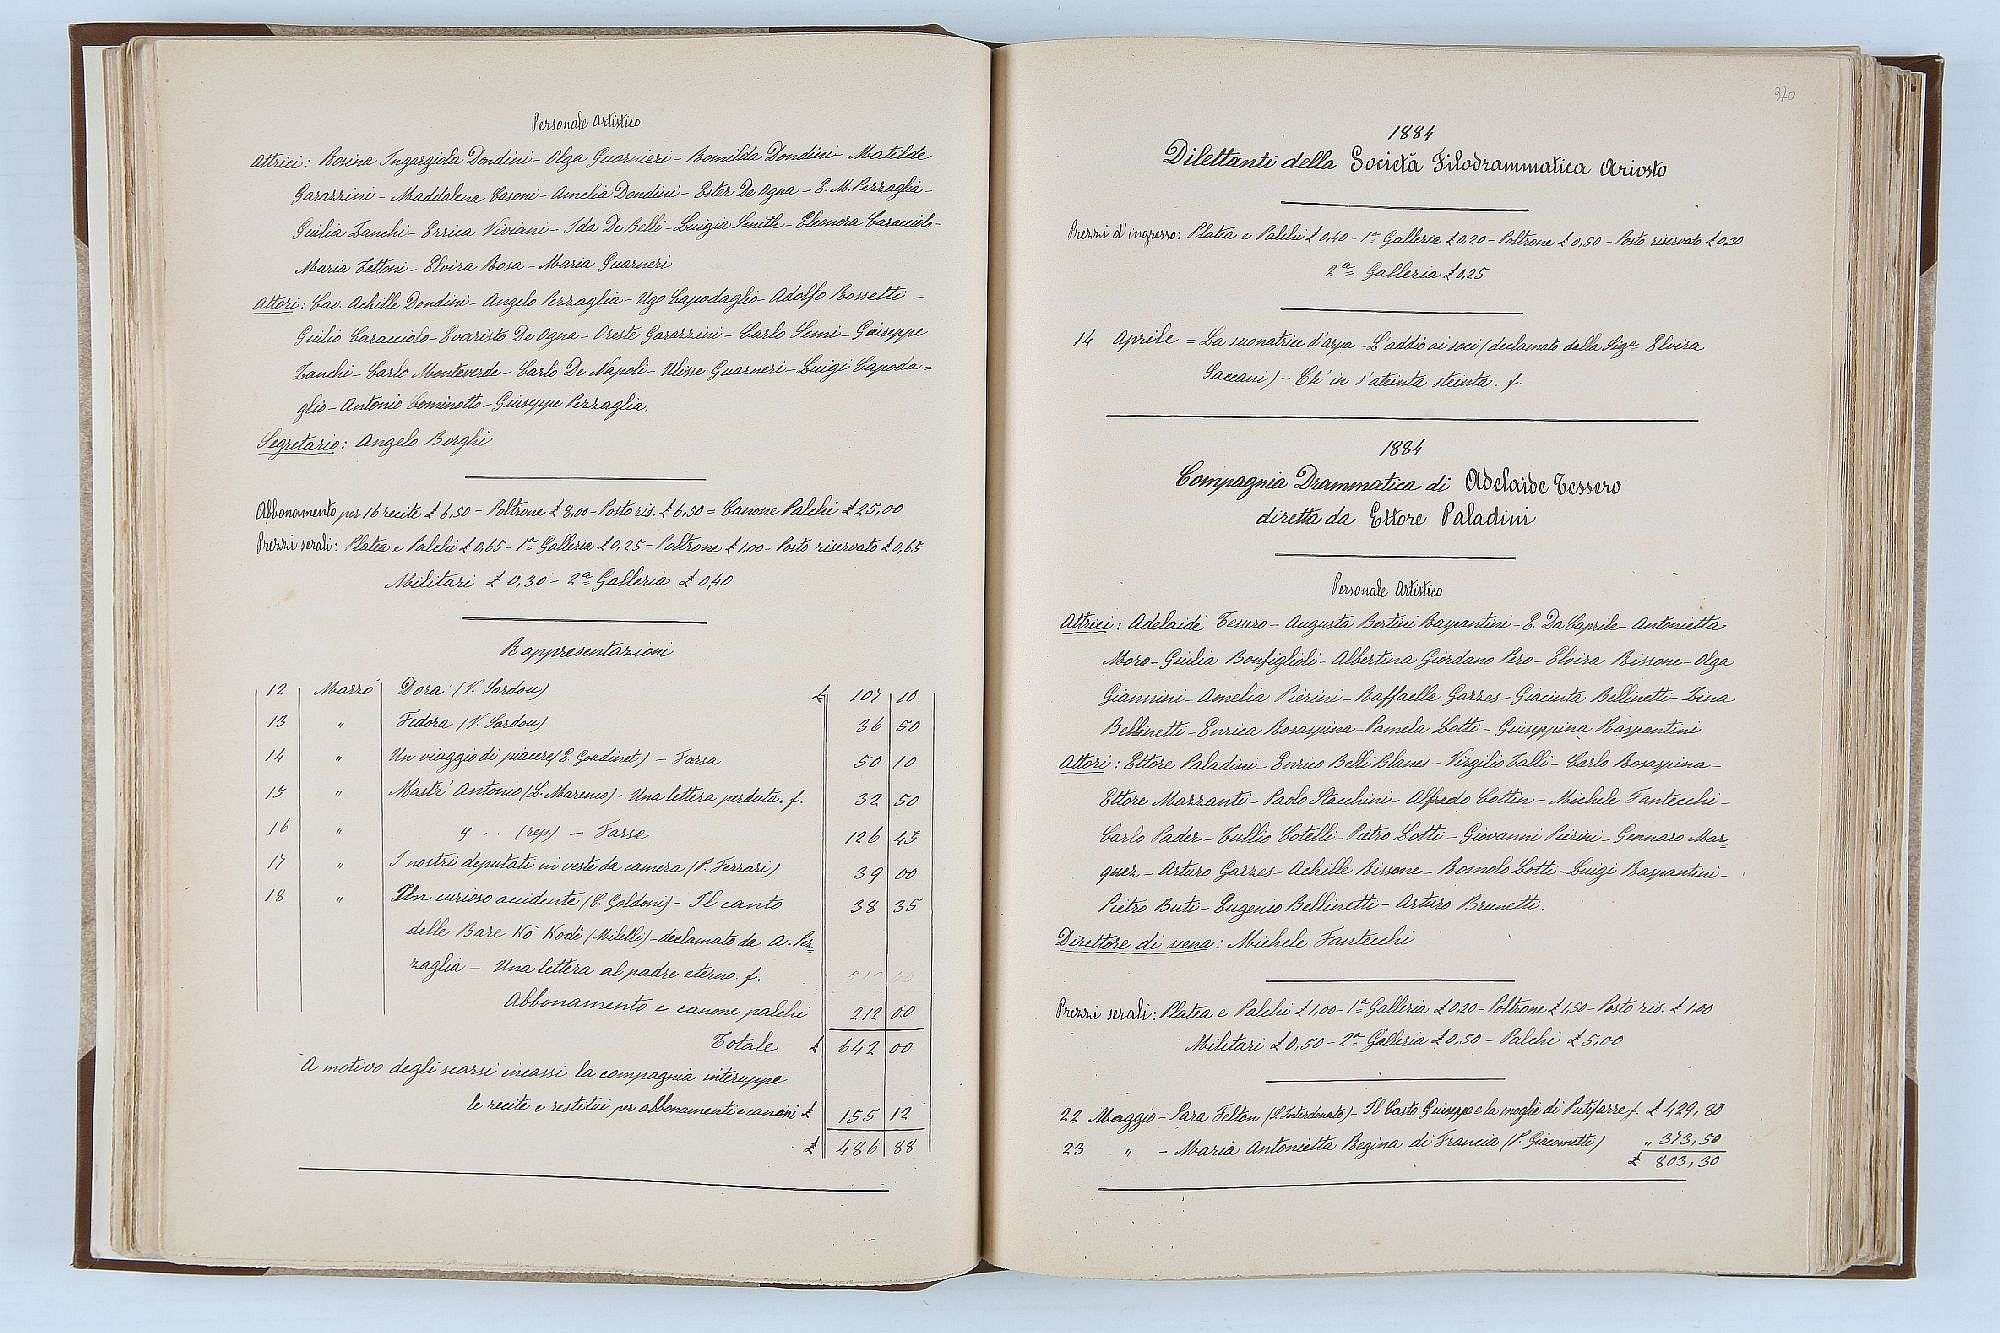 Personale Artistico
Attrici: Rosina Ingargiola Dondini - Olga Guarnieri - Romilda Dondini - Matilde
Garazzini - Maddalena Casoni - Amelia Dondini - Ester De Ogna - E. M. Pezzaglia -
Giulia Zanchi - Errica Viviani - Ida De Belli - Luigia Smith - Eleonora Caracciolo -
Maria Zettoni - Elvira Rosa - Maria Guarneri
Attori: Cav. Achille Dondini - Angelo Pezzaglia - Ugo Capodaglio - Adolfo Rossetti -
Giulio Caracciolo - Evaristo De Ogna - Oreste Garazzini - Carlo - Giuseppe
Zanchi - Carlo Monteverde - Carlo De Napoli - Ulisse Guarneri - Luigi Capoda-
glio - Antonio Cominotto - Giuseppe Pezzaglia.
Segretario: Angelo Borghi
Abbonamento per 16 recite £ 6,50 - Poltrone £ 8,00 - Posto ris. £ 6,50 = Canone Palchi £ 25,00
Prezzi serali: Platea e Palchi £ 0,65 - 1ª Galleria £ 0,25 - Poltrone £ 1,00 - Posto riservato £ 0,65
Militari £ 0,30 - 2ª Galleria £ 0,40
Rappresentazioni
12 Marzo Dora (V. Sardou) £ 107 10
13 " Fedora (V. Sardou) 36 50
14 " Un viaggio di piacere (E. Gondinet) - Farsa 50 10
15 " Mastr' Antonio (L. Marenco) - Una lettera perduta. f. 32 50
16 " " (rep) - Farse 126 45
17 " I nostri deputati in veste da camera (P. Ferrari) 39 00
18 " Un curioso accidente (C. Goldoni) - Il canto 38 35
delle Bare Kò Kodè (Milelli) - declamato da A. Pez-
zaglia - Una lettera al padre eterno. f.
Abbonamento e canone palchi 212 00
Totale £ 642 00
A motivo degli scarsi incassi la compagnia interuppe
le recite e restituì per abbonamenti e canoni £ 155 12
£ 486 88
370
1884
Dilettanti della Società Filodrammatica Ariosto
Prezzi d'ingresso: Platea e Palchi £ 0,40 - 1ª Galleria £ 0,20 - Poltrone £ 0,50 - Posto riservato £ 0,30
2ª Galleria £ 0,25
14 Aprile = La suonatrice d'arpa - L'addio ai soci (declamato della Sigª Elvira
Saccani) - Ch' in s'atenta steinta. f.
1884
Compagnia Drammatica di Adelaide Tessero
diretta da Ettore Paladini
Personale Artistico
Attrici: Adelaide Tessero - Augusta Bertini Raspantini - E. Da Caprile - Antonietta
Moro - Giulia Bonfiglioli - Albertina Giordano Pero - Elvira Bissone - Olga
Giannini - Amelia Pierini - Raffaella Garzes - Giacinta Bellinetti - Lina
Bellinetti - Enrica Rosaspina - Pamela Lotti - Giuseppina Raspantini
Attori: Ettore Paladini - Enrico Belli Blanes - Virgilio Talli - Carlo Rosaspina -
Ettore Mazzanti - Paolo Stacchini - Alfredo Cottin - Michele Fantecchi -
Carlo Pader - Tullio Cotelli - Pietro Lotti - Giovanni Pierini - Gennaro Mar-
quez - Arturo Garzes - Achille Bissone - Romolo Lotti - Luigi Raspantini -
Pietro Buti - Eugenio Bellinetti - Arturo Brunetti.
Direttore di scena: Michele Fantecchi
Prezzi serali: Platea e Palchi £ 1,00 - 1ª Galleria £ 0,20 - Poltrone £ 1,50 - Posto ris. £ 1,00
Militari £ 0,50 - 2ª Galleria £ 0,50 - Palchi £ 5,00
22 Maggio - Sara Felton (S. Interdonato) - Il Casto Giuseppe e la moglie di Putifarre f. £ 429,80
23 " - Maria Antonietta Regina di Francia (P. Giacometti) " 373,50
£ 803,30